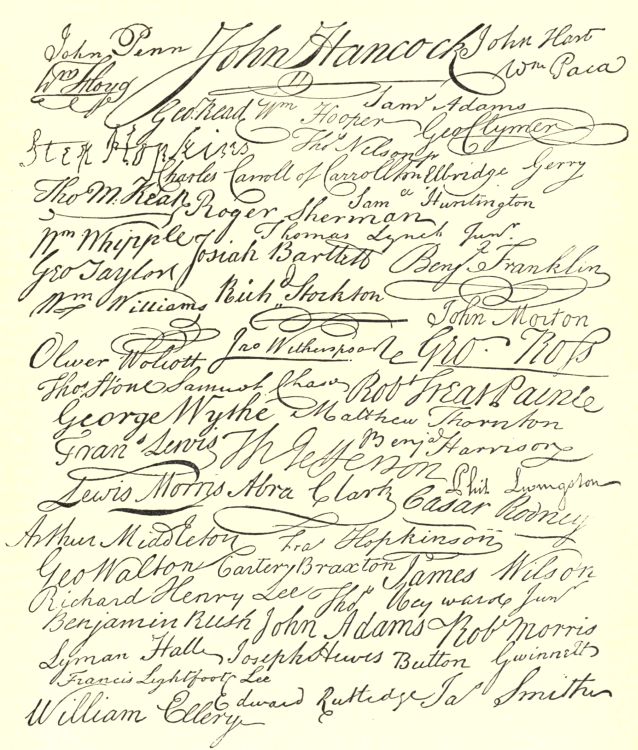 John Penn John Hancock John Hart
Wm Floyd Wm Paca
Geo. Read Wm Hooper Saml Adams
Step Hopkins Thos Nelson jr Geo Clymer
Charles Carroll of Carrollton Elbridge Gerry
Tho M. Kean Roger Sherman Saml Huntington
Wm Whipple Josiah Bartlett Thomas Lynch Junr. Benj Franklin
Geo Taylor
Wm Williams Richd Stockton John Morton
Oliver Wolcott Jno Witherspoon Geo. Ross
Thos Stone Samuel Chase Robt Treat Paine
George Wythe Matthew Thornton
Frans Lewis Th Jefferson Benja Harrison
Lewis Morris Abra Clark Phil Livingston
Cæsar Rodney
Arthur Middleton Fras Hopkinson
Geo Walton Carter Braxton James Wilson
Richard Henry Lee Thos Heyward Junr
Benjamin Rush John Adams Robt Morris
Lyman Hall Joseph Hewes Button Gwinnett
Francis Lightfoot Lee
William Ellery Edward Rutledge Jas Smith